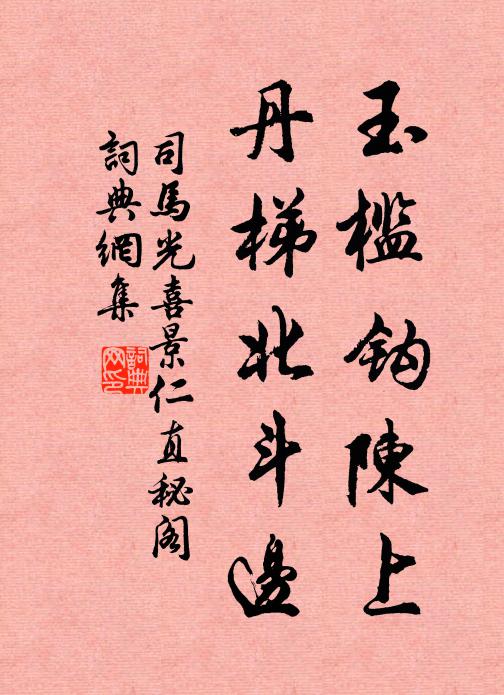 玉槛钩陳上
丹梯北斗邊
司馬光喜景仁直秘阁
詞典網集
詞典
网印